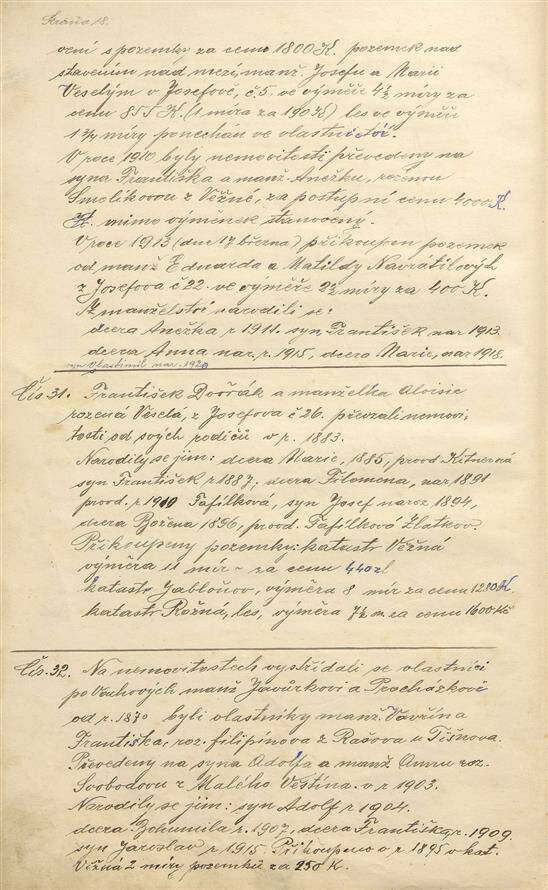 Strana 18.
vení s pozemky za cenu 1800 K. pozemek nad
stavením nad mezí, manž. Josefu a Marii
Veselým v Josefově, č. 5. ve výměře 4½ míry za
cenu 855 K. (1 míra za 190 K) les ve výměře
míry ponechán ve vlastnictví.
V roce 1910 byly nemovitosti převedeny na
syna Františka a manž. Anežku, rozenou
Smolíkovou z Věžné, za postupní cenu 4000 K.
mimo výměnek stanovený.
V roce 1913 (dne 17. března) přikoupen pozemek
od manž Eduarda a Matildy Navrátilových
z Josefova č 22. ve výměře 2½ míry za 400 K.
Z manželství narodili se:
dcera Anežka r 1911. syn František nar 1913.
dcera Anna nar. r. 1915, dcera Marie, nar 1918.
syn Vlastimil nar. 1920
Čís. 31. František Dvořák a manželka Aloisie
rozená Veselá, z Josefova č 26. převzali nemovi-
tosti od svých rodičů v r. 1883.
Narodily se jim: dcera Marie, 1885, provd. Kitnerová
syn František r 1887; dcera Filomena, nar 1891
provd. r 1910 Tafilková, syn Josef naroz 1894,
dcera Božena 1896, provd. Tafilková Zlatkov
Přikoupeny pozemky: katastr Věžná
výměra 11 mír - za cenu 440 zl
katastr Jabloňov, výměra 8 mír za cenu 1280 K
katastr Rožná, les, výměra 7½ m za cenu 1600 Kč
Čís. 32. Na nemovitostech vystřídali se vlastníci
po Vouhových manž Javůrkovi a Procházkovi
od r. 1870 byli vlastníky manž. Vavřína
Františka, roz. Filipínova z Rašova u Tišnova.
Převedeny na syna Adolfa a manž Annu roz.
Svobodovu z Malého Vestína. v r 1903.
Narodily se jim: syn Adolf r 1904.
dcera Bohumila r. 1907, dcera Františka r. 1909.
syn Jaroslav r 1915. Přikoupeno v r 1895 v kat.
Věžná 2 míry pozemků za 250 K.